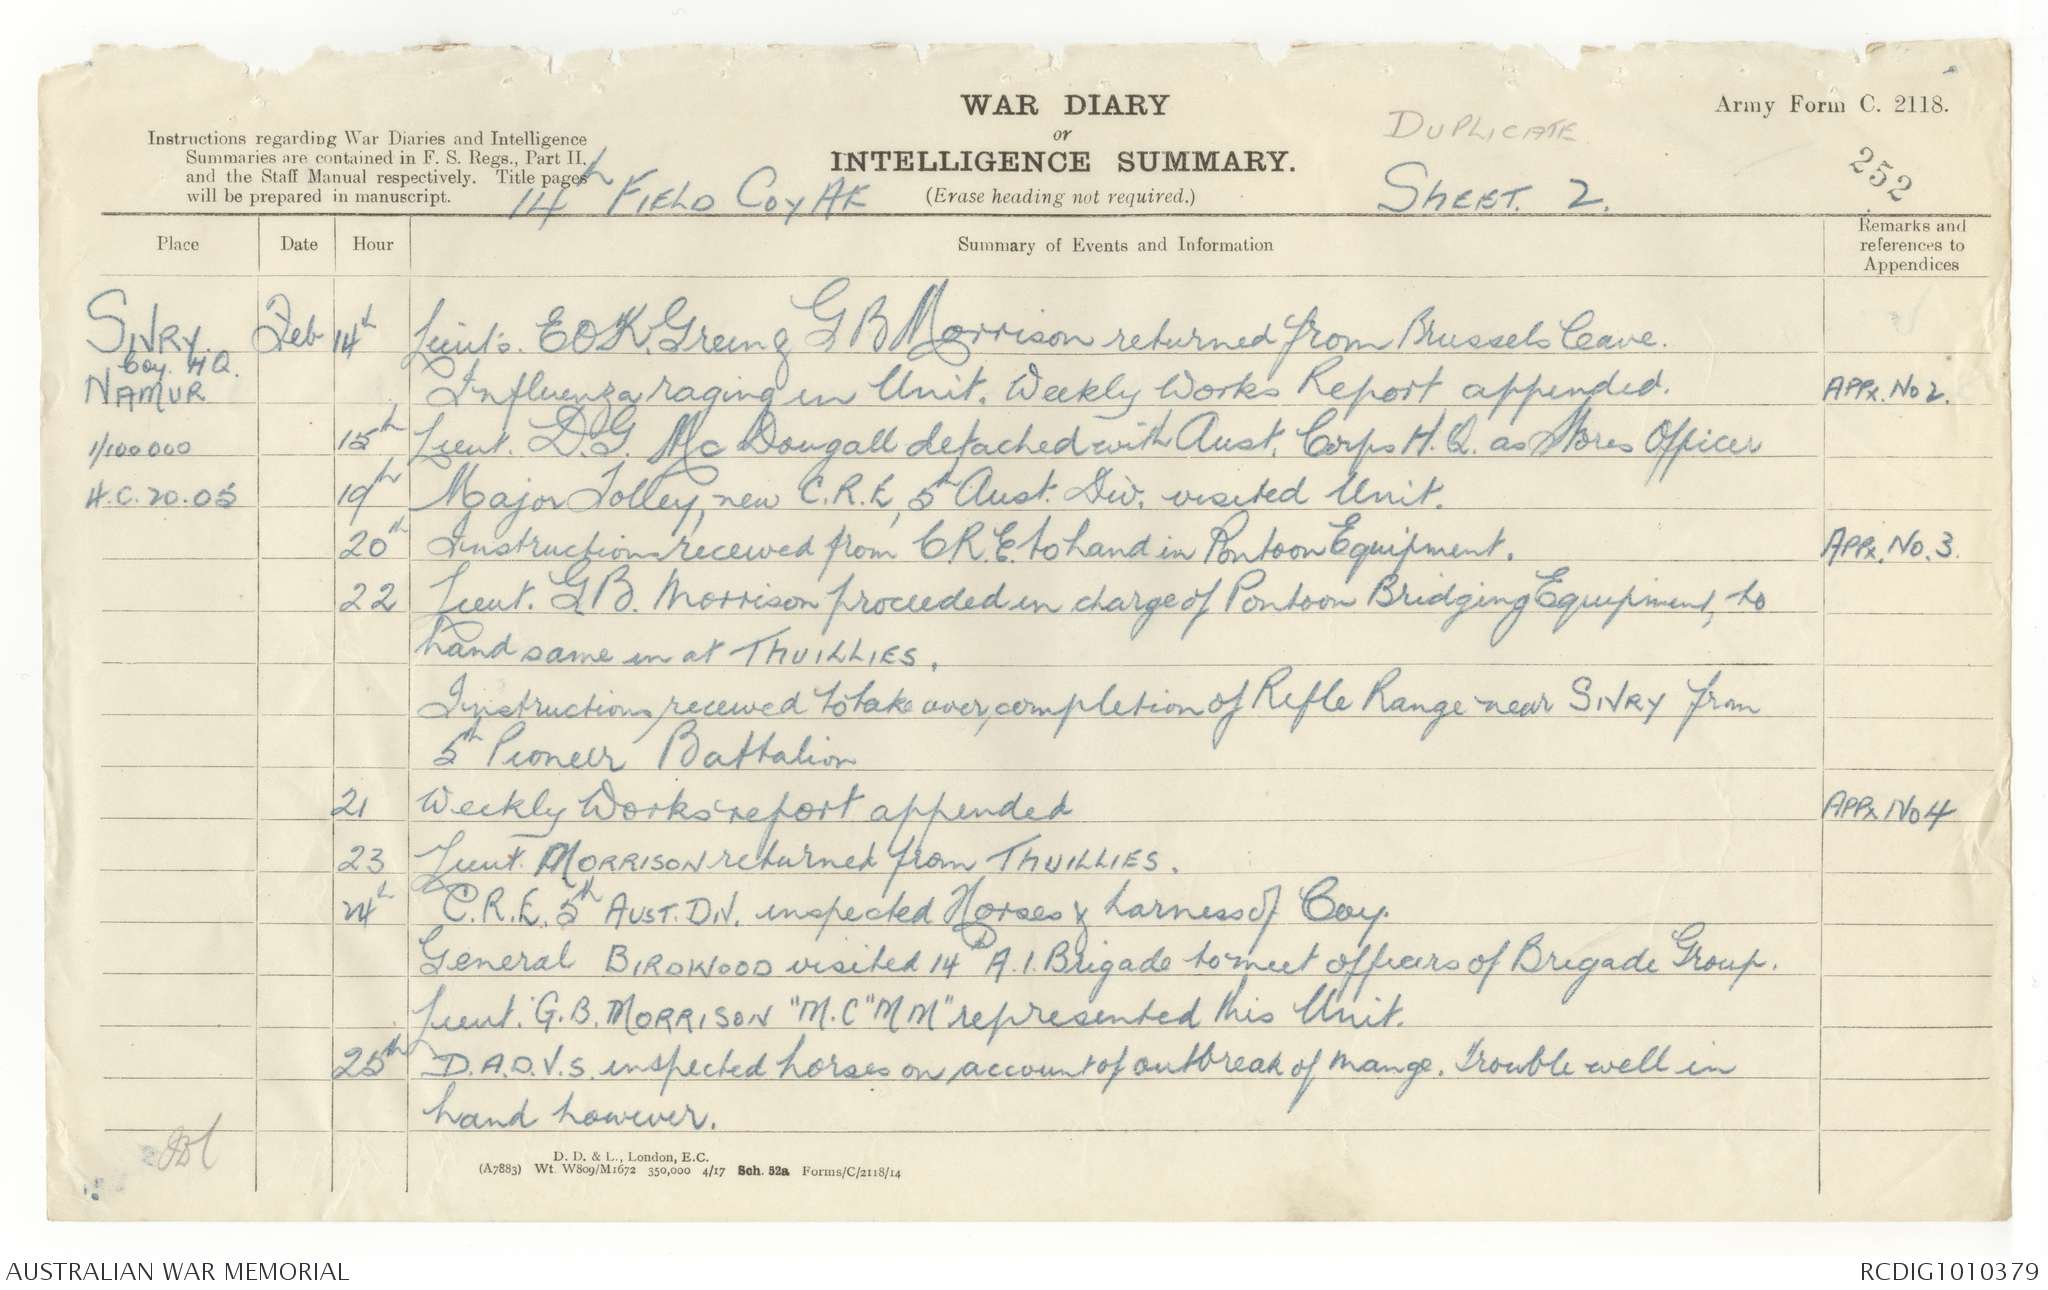 WAR DIARY
or
INTELLIGENCE SUMMARY.
(Erase heading not required.)
Army Form C. 2118.
Instructions regarding War Diaries and Intelligence
Summaries are contained in F. S. Regs., Part II.
and the Staff Manual respectively. Title pages
will be prepared in manuscript.
14th FIELD COY AE
DUPLICATE
SHEET. 2.
252
Place Date Hour Summary of Events and Information Remarks and references to Appendices
SIVRY. Feb 14th Lieuts. E O K. Green & G B Morrison returned from Brussels Leave.
Coy. HQ.
NAMUR Influenza raging in Unit. Weekly Works Report appended. APPx. No 2.
1/100000 15th Lieut. D.G. McDougall detached with Aust. Corps H.Q. as Stores Officer
H.C.20.05 19th Major Tolley, new C.R.E, 5th Aust. Div. visited Unit.
20th Instructions received from C.R.E. to hand in Pontoon Equipment. APPx. No. 3.
22 Lieut. G.B. Morrison proceeded in charge of Pontoon Bridging Equipment, to
hand same in at THUILLIES.
Instructions received to take over completion of Rifle Range near SIVRY from
5th Pioneer Battalion
21 Weekly Works report appended APPx No 4
23 Lieut. MORRISON returned from THUILLIES.
24th C.R.E. 5th AUST. DIV. inspected Horses & harness of Coy.
General BIRDWOOD visited 14th A.I. Brigade to meet officers of Brigade Group.
Lieut. G.B. MORRISON "M.C" "M M" represented this Unit.
25th D.A.D.V.S. inspected horses on account of outbreak of mange. Trouble well in
hand however.
D. D. & L., London, E.C.
(A7883) Wt. W809/M1672 350,000 4/17 Sch. 52a Forms/C/2118/14
AUSTRALIAN WAR MEMORIAL
RCDIG1010379